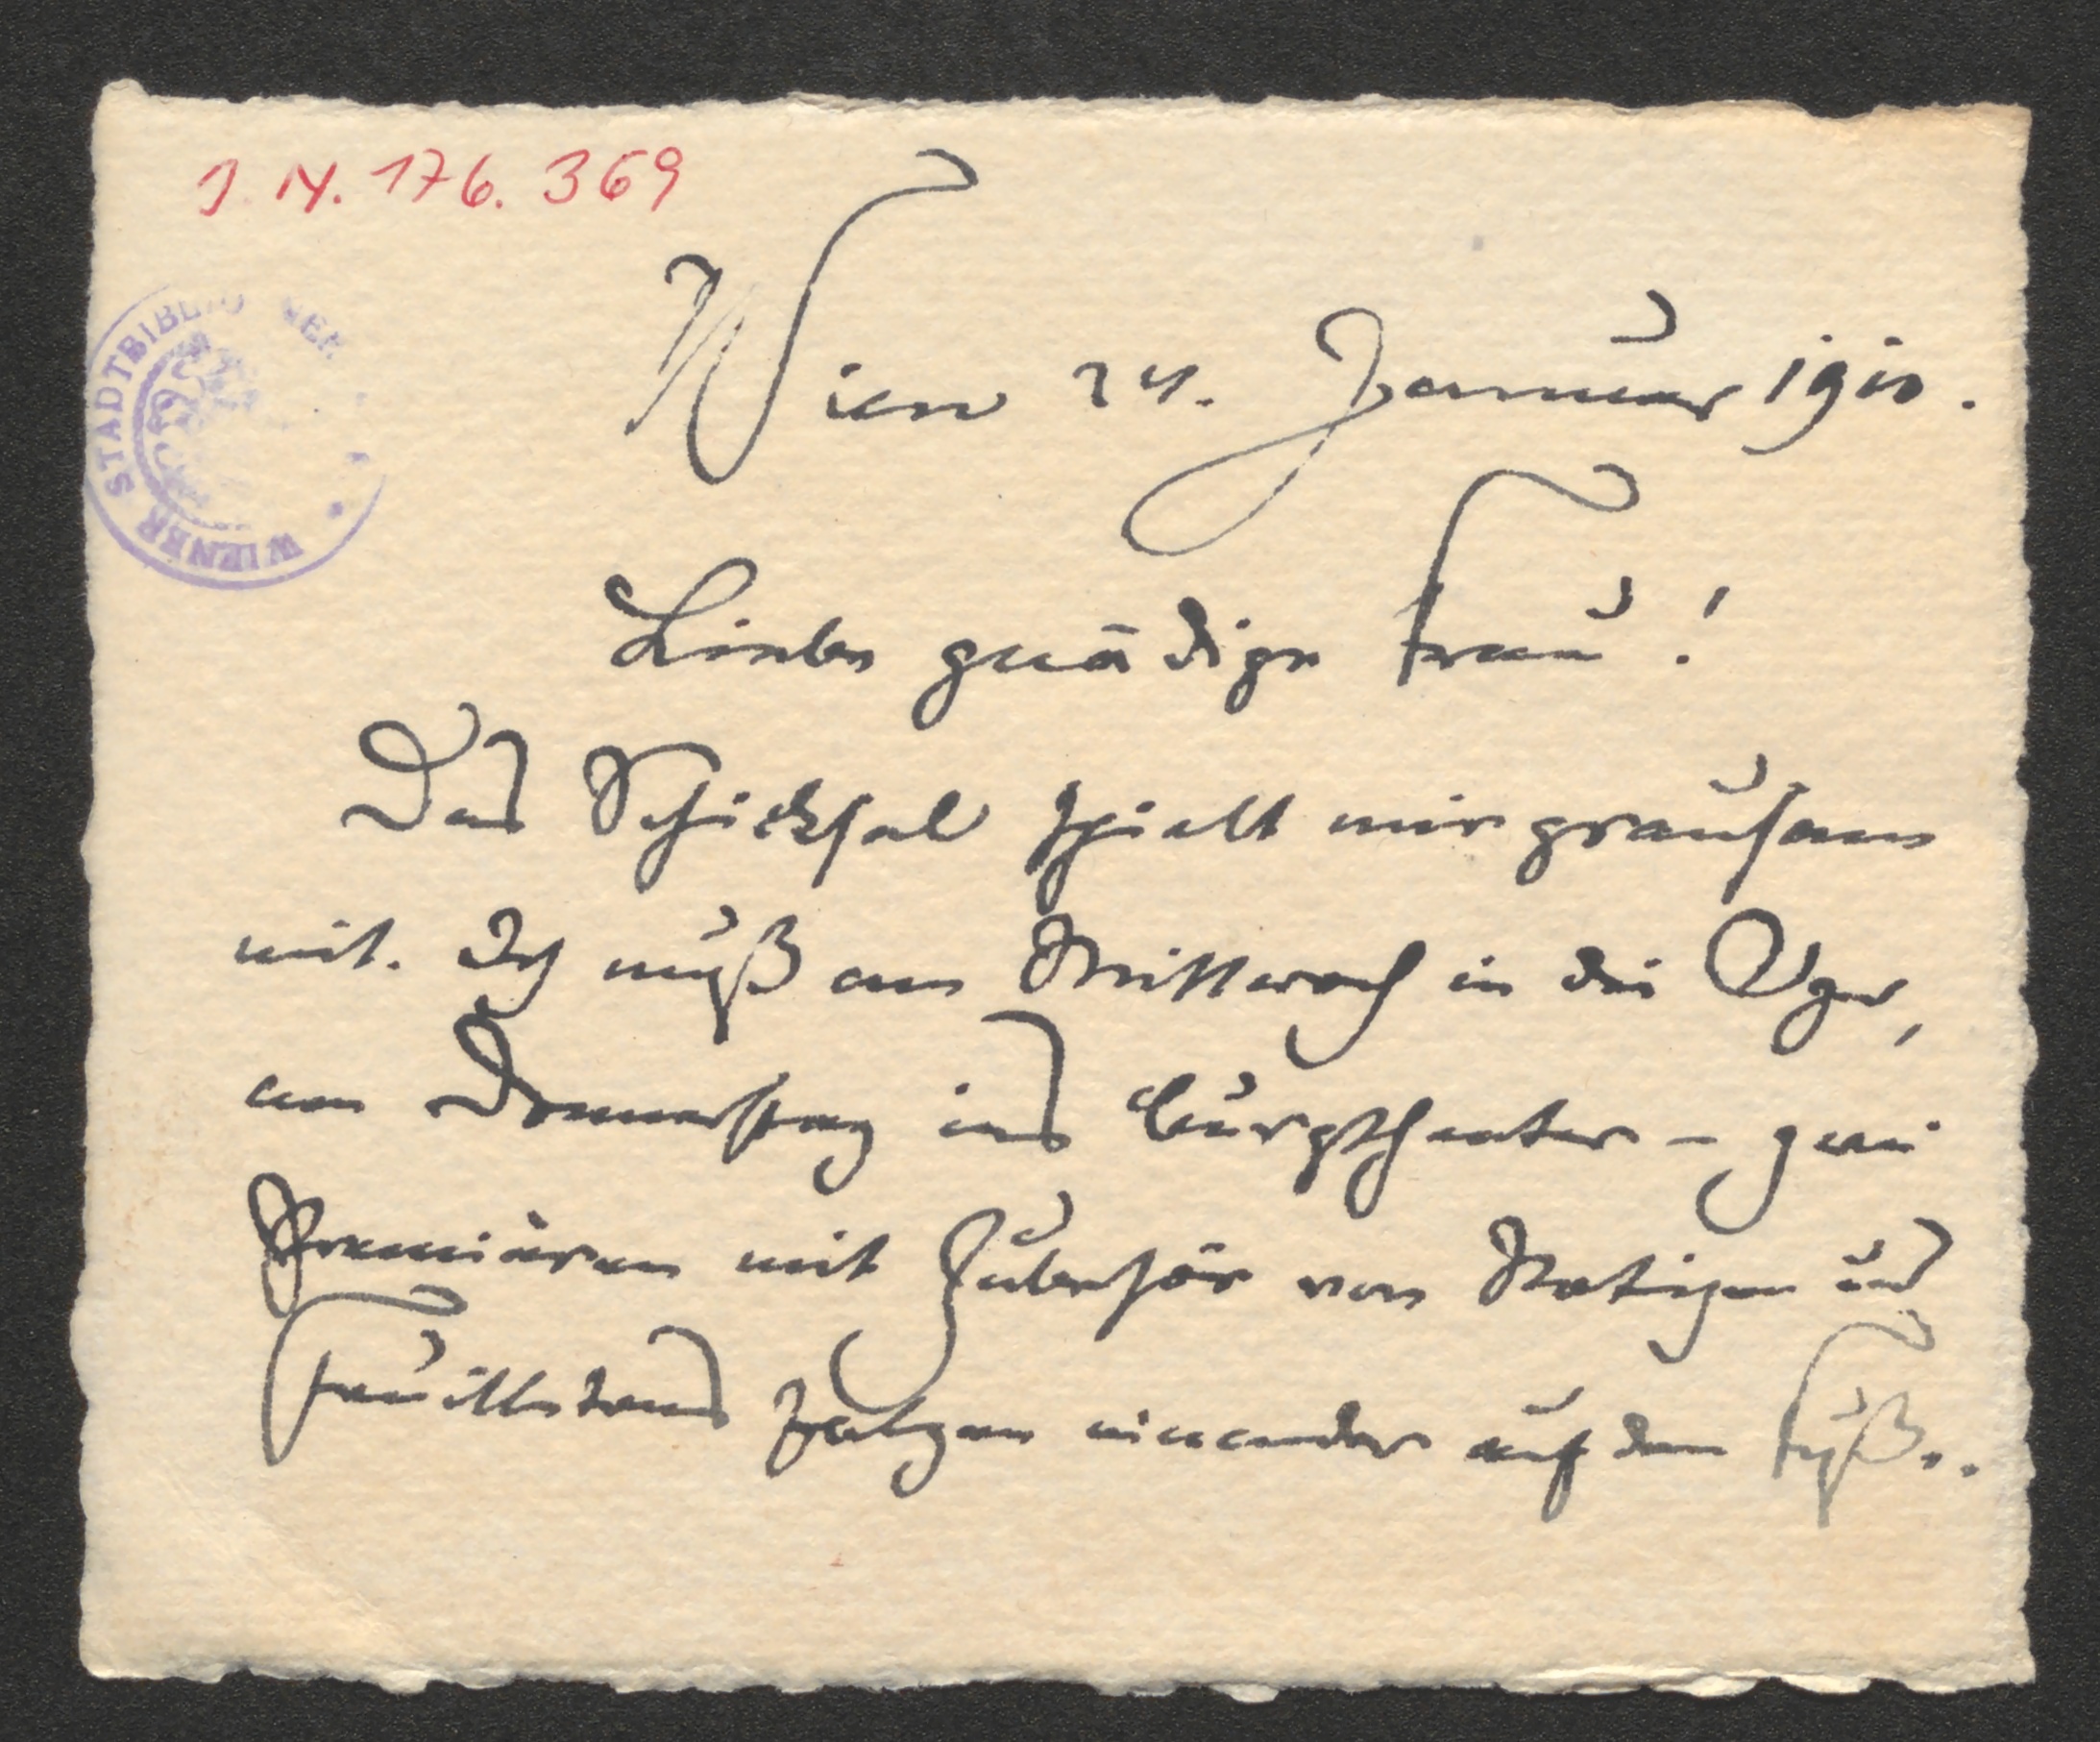 J. N. 176.369
WIENER STADTBIBLIOTHEK
Wien 24. Januar 1910.
Liebe gnädige Frau!
Das Schicksal spielt mir grausam
mit. Ich muß am Mittwoch in die Oper,
am Donnerstag ins Burgtheater – zwei
Premièren mit Zubehör von Notizen und
Feuilletons folgen einander auf dem Fuß..